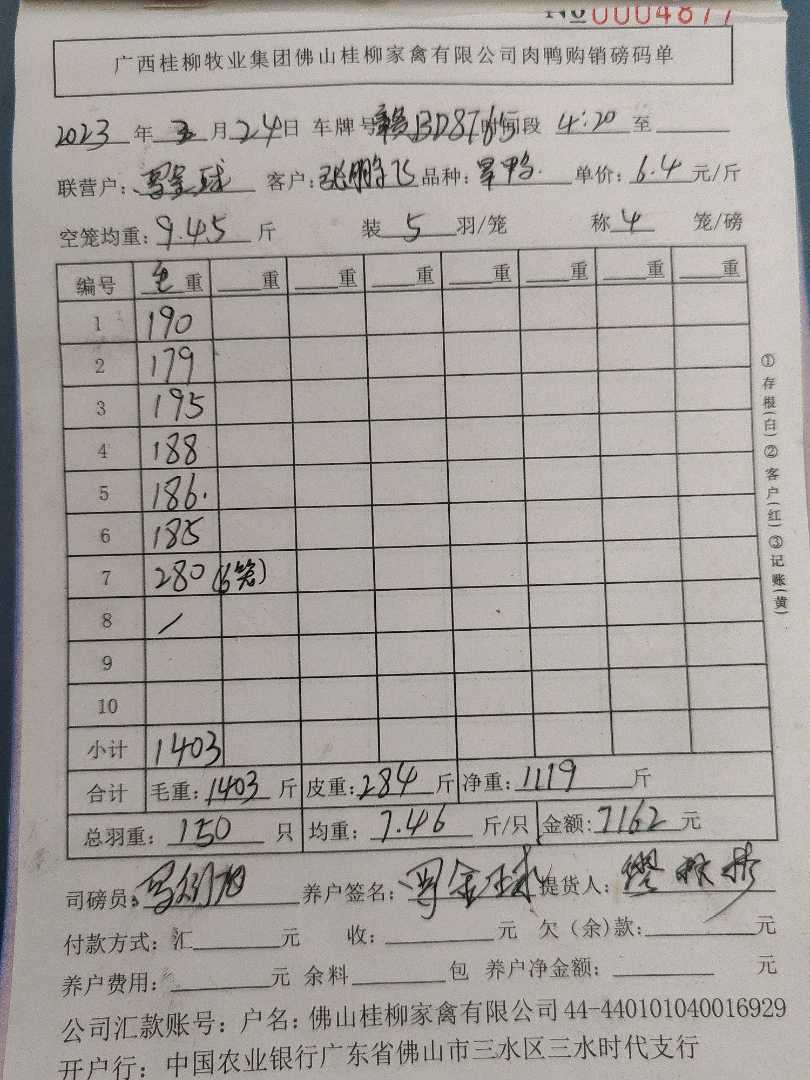 No 0004877
广西桂柳牧业集团佛山桂柳家禽有限公司肉鸭购销磅码单
2023年 五 月 24 日 车牌号 赣BD8765 时间段 4:20 至
联营户: 罗金球 客户: 张鹏飞 品种: 旱鸭 单价: 6.4 元/斤
空笼均重: 9.45 斤 装 5 羽/笼 称 4 笼/磅
编号 毛重 重 重 重 重 重 重 重
1 190
2 179
3 195
4 188
5 186.
6 185
7 280 (6笼)
8 /
9
10
小计 1403
合计 毛重: 1403 斤 皮重: 284 斤 净重: 1119 斤
总羽重: 150 只 均重: 7.46 斤/只 金额: 7162 元
司磅员: 养户签名: 罗金球 提货人:
付款方式: 汇 元 收: 元 欠(余)款: 元
养户费用: 元 余料 包 养户净金额: 元
公司汇款账号: 户名: 佛山桂柳家禽有限公司 44-440101040016929
开户行: 中国农业银行广东省佛山市三水区三水时代支行
①存根(白)②客户(红)③记账(黄)